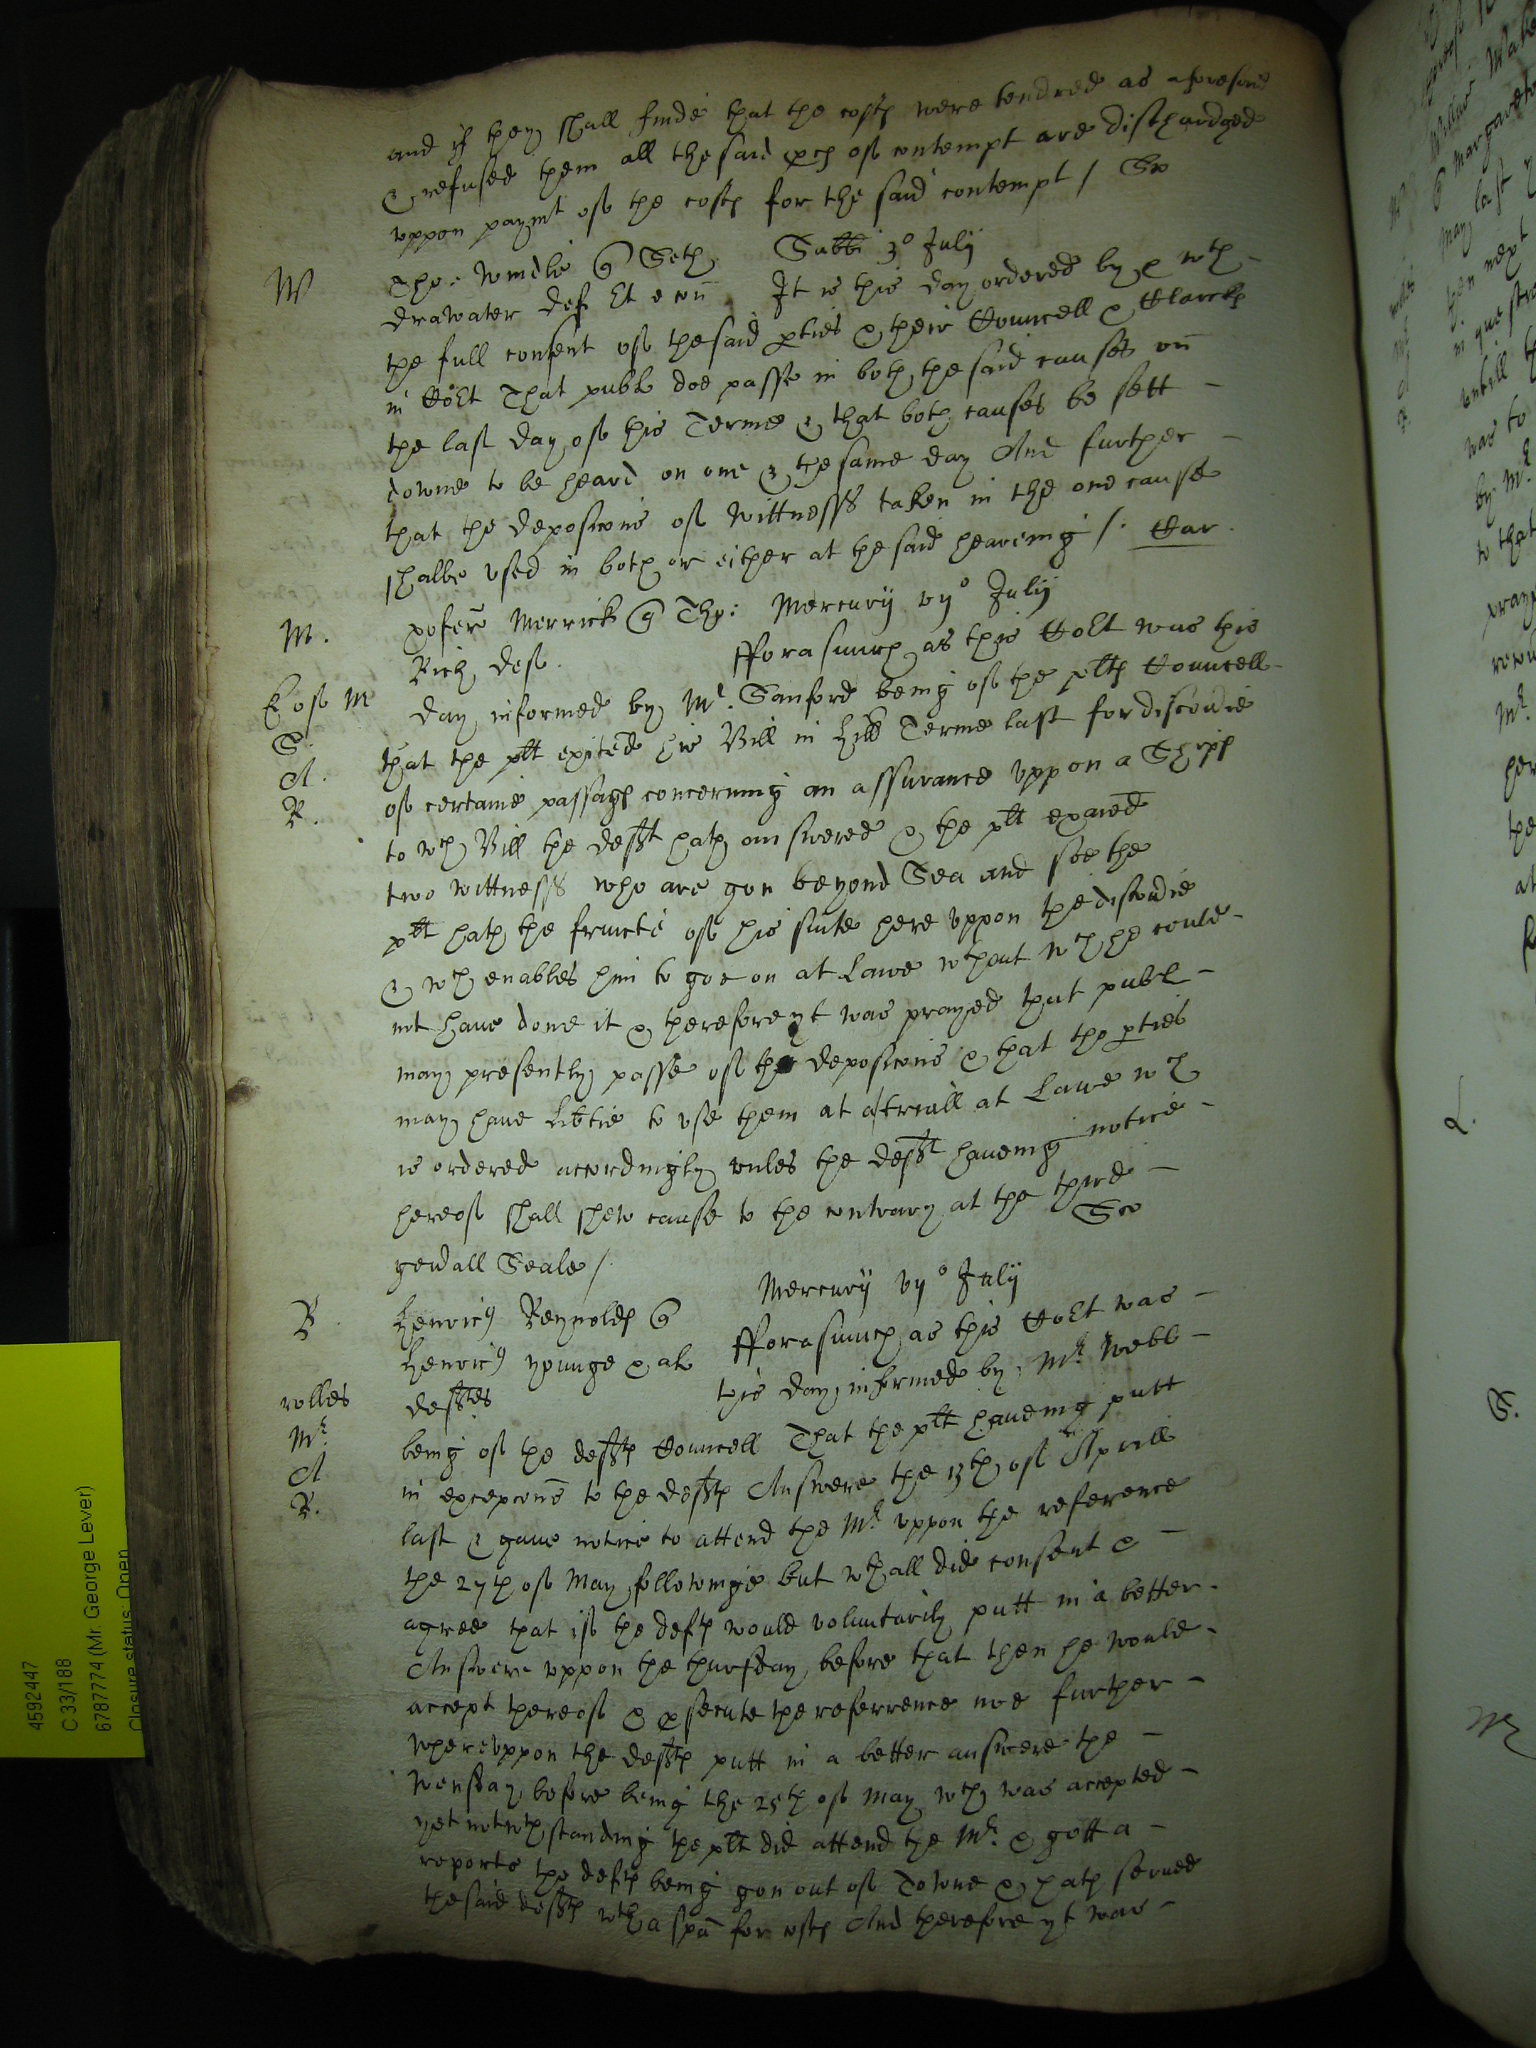 and if they shall finde that the costs were tendred as aforesaid
& refused then all the said pces of contempt are dischardged
uppon paymt of the costs for the said contempt / Sa
W
Tho: Windle Seth Sabbi 3o July
drawater def Et e con It is this day ordered by & wth
the full consent of the said pties & their Councell & Clarcks
in Cort That publ doe passe in both the said causes on
the last day of this Terme & that both causes be sett
downe to be heard on one & the same day And further
that the deposicons of wittnesss taken in the one cause
shalbe used in both or either at the said heareing /. Car.
M. Merrick Tho: Mercurij vijo Julij
Rich deft. fforasmuch as this Cort was this
E of M day informed by Mr. Sanford being of the plts Councell
S. that the plt exited his Bill in Hill Terme last for discovie
A. of certaine passages concerning an assurance uppon a Shipp
R. to wch Bill the deft hath answered & the plt exaied
two wittnesss who are gon beyond Sea and soe the
plt hath the fructe of his suite here uppon the discovie
& wch enables him to goe on at Lawe wthout wch he could
not have done it & therefore yt was prayed that publ
may presently passe of the deposicons & that the pties
may have Libtie to use them at a triall at Lawe wch
is ordered accordingly unles the deft haveing notice
hereof shall shew cause to the contrary at the third
gerall Seale / Sa
Mercurij vijo Julij
R Henric Reynolds
Henric younge & al fforasmuch as this Cort was
rolles deftes this day informed by Mr. Webb
Mr. being of the defts Councell That the plt haveing putt
A in excepcons to the defts Answere the 13th of Aprill
R. last & gave notice to attend the Mr. uppon the reference
the 27th of May followinge but wthall did consent &
agree that if the defts would voluntarily putt in a better
Answere uppon the thursday before that then he would
accept thereof & psecute the referrence noe further
whereuppon the defts putt in a better answere the
Wensday before being the 25th of May wch was accepted
yet notwthstanding the plt did attend the Mr. & gott a
reporte the defts being gon out of Towne & hath served
the said defts wth a spa for costs And therefore yt was
4592447
C 33/188
6787774 (Mr. George Lever)
Closure status: Open